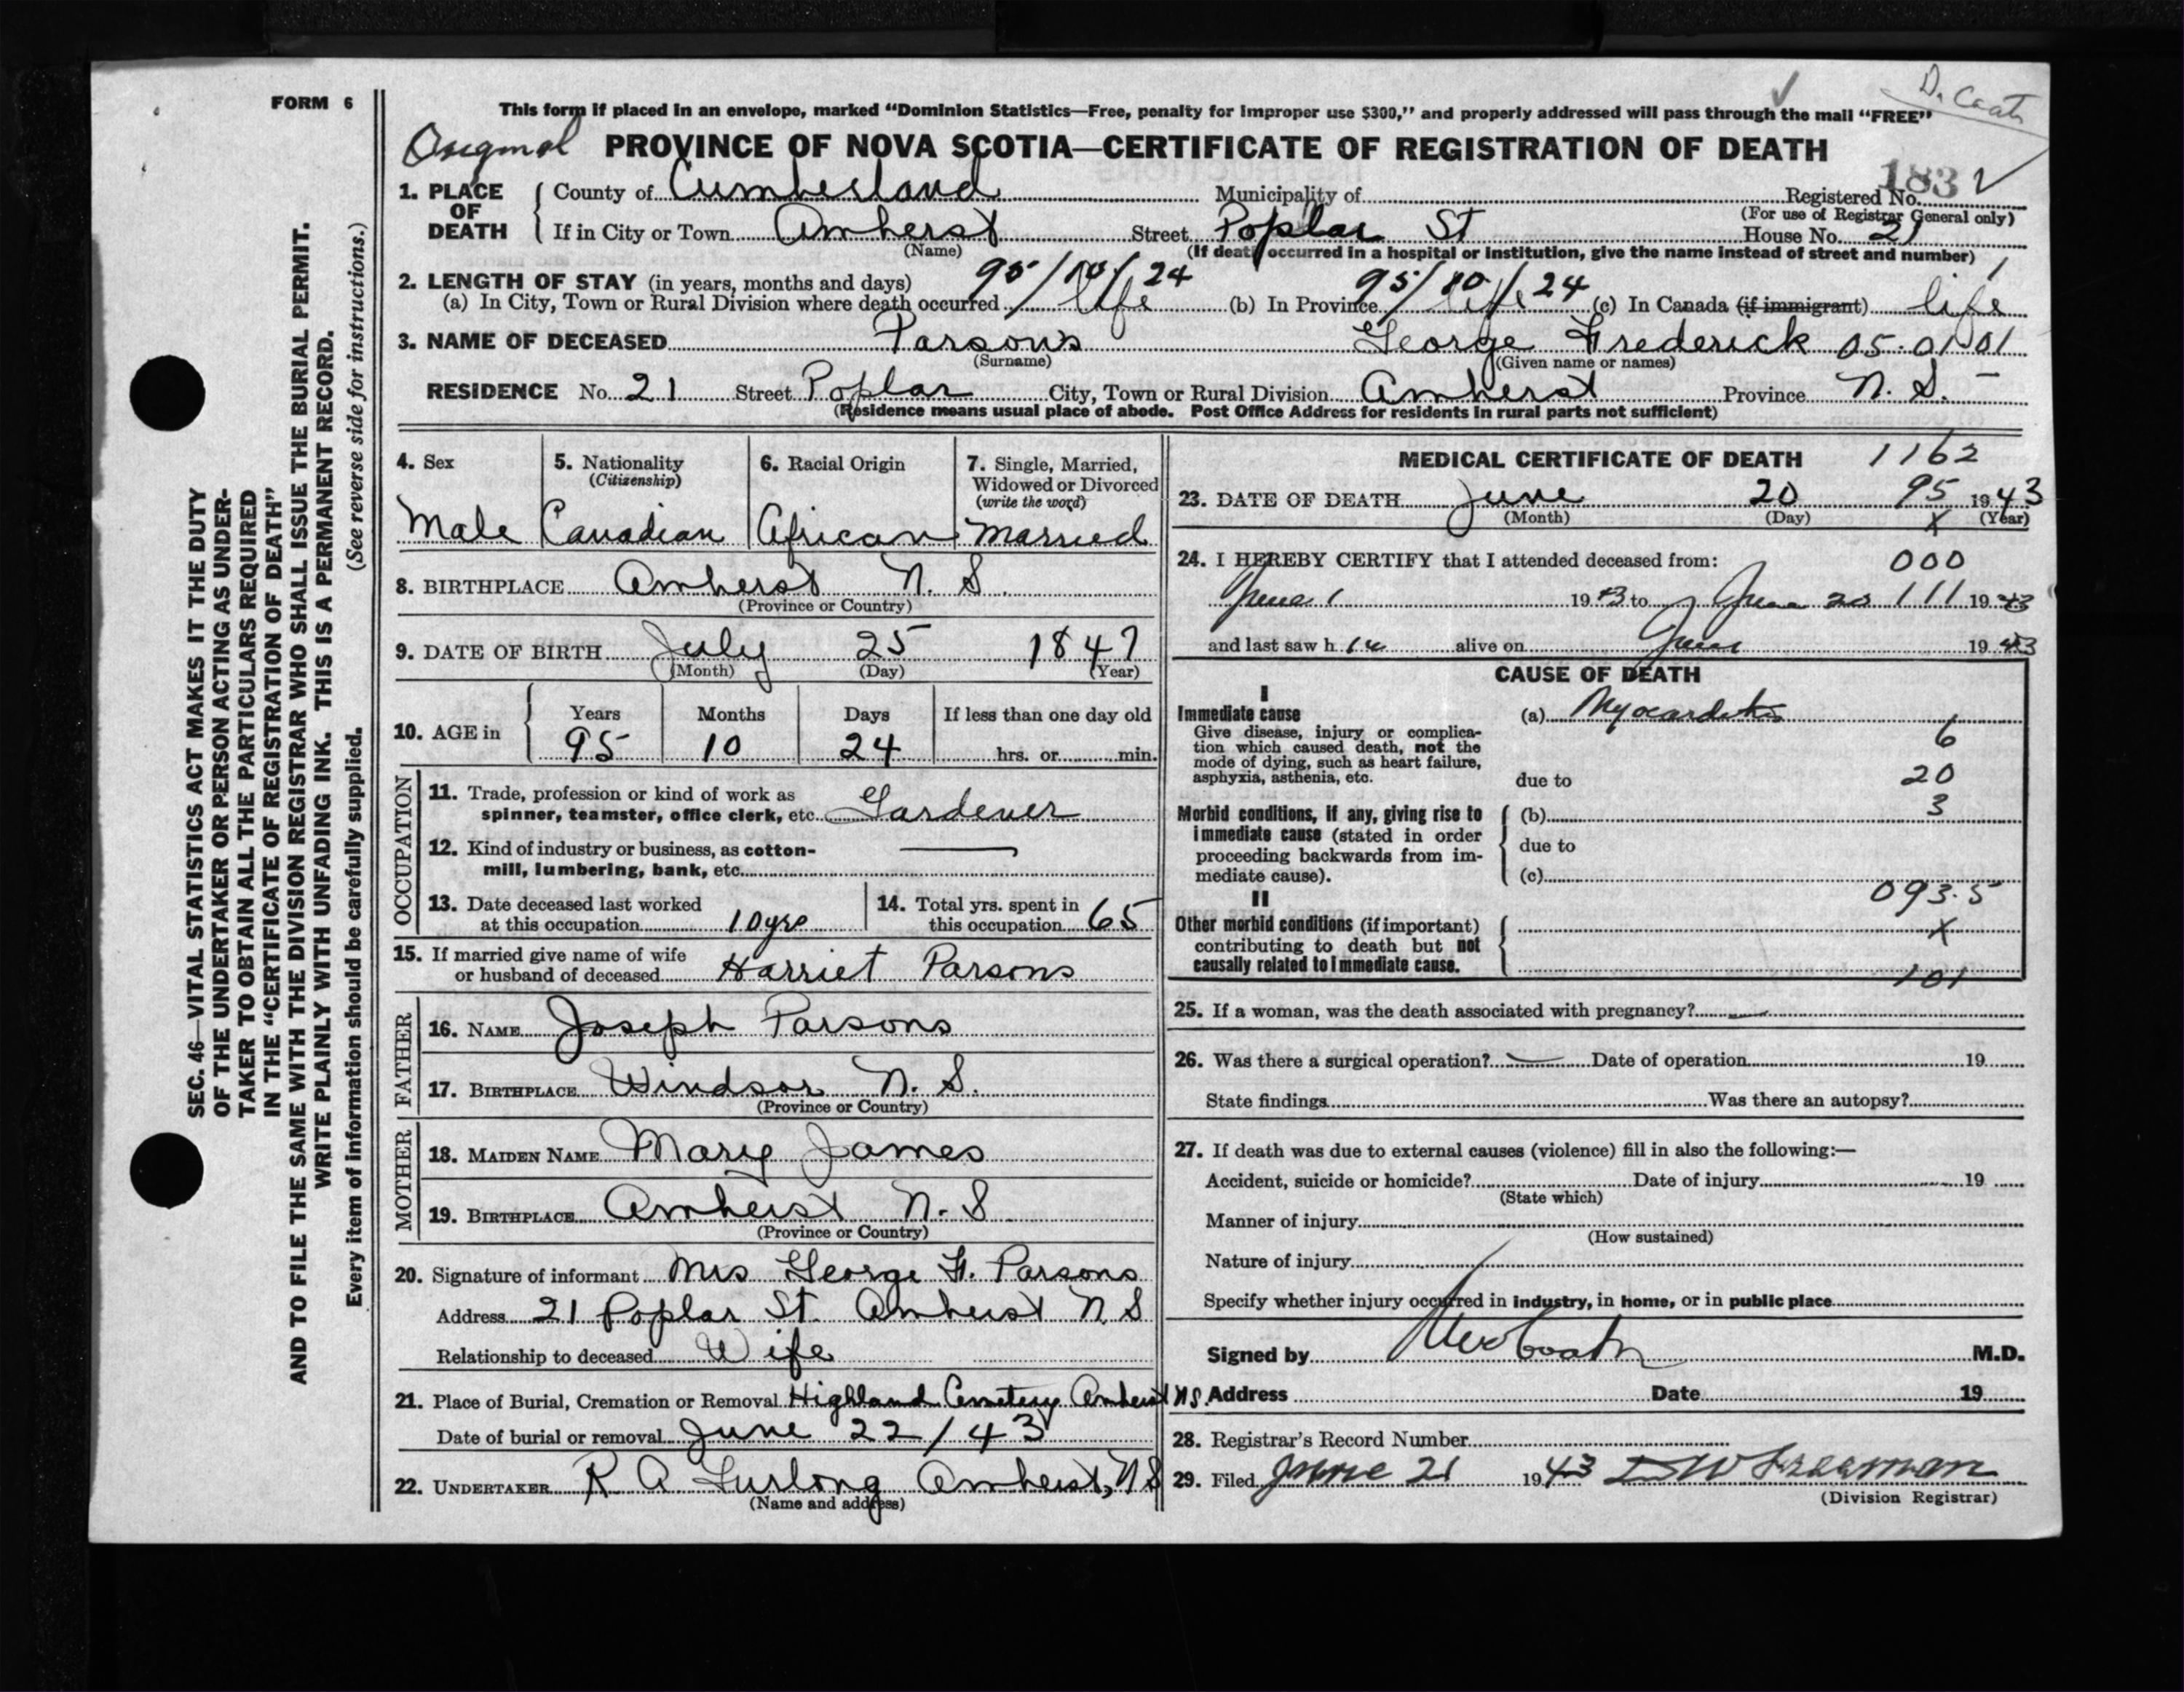 FORM 6
D. Coats
This form if placed in an envelope, marked “Dominion Statistics—Free, penalty for improper use $300,” and properly addressed will pass through the mail “FREE”
Original PROVINCE OF NOVA SCOTIA—CERTIFICATE OF REGISTRATION OF DEATH
183
1. PLACE OF DEATH County of Cumberland Municipality of Registered No.
(For use of Registrar General only)
If in City or Town Amherst Street Poplar St House No. 21
(Name) (If death occurred in a hospital or institution, give the name instead of street and number)
2. LENGTH OF STAY (in years, months and days) 95/10/24 95/10/24
(a) In City, Town or Rural Division where death occurred life (b) In Province life (c) In Canada (if immigrant) life
3. NAME OF DECEASED Parsons George Frederick 05.01 01
(Surname) (Given name or names)
RESIDENCE No. 21 Street Poplar City, Town or Rural Division Amherst Province N. S.
(Residence means usual place of abode. Post Office Address for residents in rural parts not sufficient)
4. Sex
Male
5. Nationality
(Citizenship)
Canadian
6. Racial Origin
African
7. Single, Married,
Widowed or Divorced
(write the word)
Married
8. BIRTHPLACE Amherst N. S.
(Province or Country)
9. DATE OF BIRTH July 25 1847
(Month) (Day) (Year)
10. AGE in Years Months Days If less than one day old
95 10 24 hrs. or min.
OCCUPATION
11. Trade, profession or kind of work as
spinner, teamster, office clerk, etc. Gardener
12. Kind of industry or business, as cotton-
mill, lumbering, bank, etc.
13. Date deceased last worked
at this occupation 10 yrs
14. Total yrs. spent in
this occupation 65
15. If married give name of wife
or husband of deceased Harriet Parsons
FATHER
16. NAME Joseph Parsons
17. BIRTHPLACE Windsor N. S.
(Province or Country)
MOTHER
18. MAIDEN NAME Mary James
19. BIRTHPLACE Amherst N. S
(Province or Country)
20. Signature of informant Mrs George F. Parsons
Address 21 Poplar St. Amherst N S
Relationship to deceased Wife
21. Place of Burial, Cremation or Removal Highland Cemetery Amherst N S.
Date of burial or removal June 22/43
22. UNDERTAKER R A Furlong Amherst, N S
(Name and address)
MEDICAL CERTIFICATE OF DEATH 1162
23. DATE OF DEATH June 20 95 1943
(Month) (Day) X (Year)
24. I HEREBY CERTIFY that I attended deceased from: 000
June 1 1943 to June 20 111 1943
and last saw h im alive on June 1943
CAUSE OF DEATH
I
Immediate cause
Give disease, injury or complica-
tion which caused death, not the
mode of dying, such as heart failure,
asphyxia, asthenia, etc.
(a) Myocarditis
6
due to 20
Morbid conditions, if any, giving rise to
immediate cause (stated in order
proceeding backwards from im-
mediate cause).
(b) 3
due to
(c)
093.5
II
Other morbid conditions (if important)
contributing to death but not
causally related to immediate cause.
X
101
25. If a woman, was the death associated with pregnancy?
26. Was there a surgical operation? Date of operation 19
State findings Was there an autopsy?
27. If death was due to external causes (violence) fill in also the following:—
Accident, suicide or homicide? Date of injury 19
(State which)
Manner of injury
(How sustained)
Nature of injury
Specify whether injury occurred in industry, in home, or in public place
Signed by M.D.
Address Date 19
28. Registrar's Record Number
29. Filed June 21 1943 Freeman
(Division Registrar)
SEC. 46—VITAL STATISTICS ACT MAKES IT THE DUTY
OF THE UNDERTAKER OR PERSON ACTING AS UNDER-
TAKER TO OBTAIN ALL THE PARTICULARS REQUIRED
IN THE “CERTIFICATE OF REGISTRATION OF DEATH”
AND TO FILE THE SAME WITH THE DIVISION REGISTRAR WHO SHALL ISSUE THE BURIAL PERMIT.
WRITE PLAINLY WITH UNFADING INK. THIS IS A PERMANENT RECORD.
Every item of information should be carefully supplied. (See reverse side for instructions.)